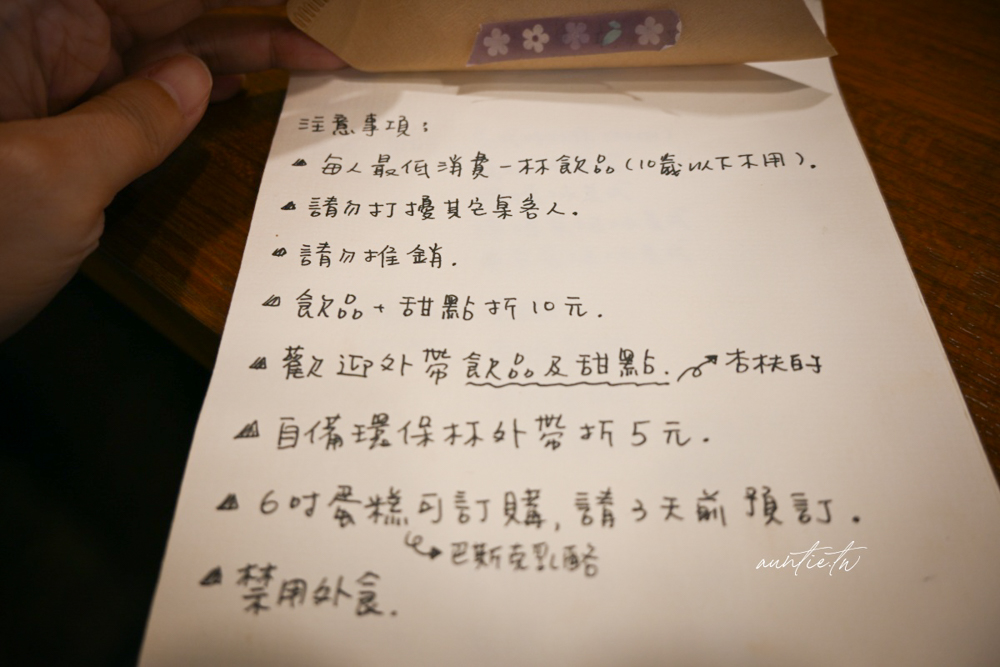 注意事項：
每人最低消費一杯飲品(10歲以下不用)。
請勿打擾其它桌客人。
請勿推銷.
飲品+甜點折10元.
歡迎外帶飲品及甜點. → 杏扶自
自備環保杯外帶折5元.
6吋蛋糕可訂購,請3天前預訂.
巴斯克乳酪
禁用外食.
auntie.tw